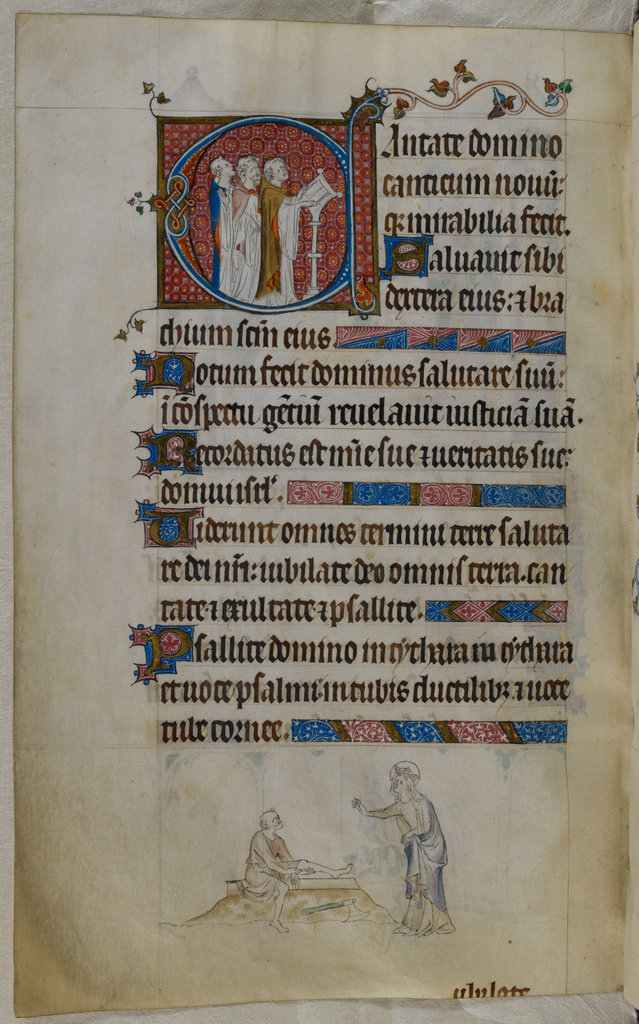 Cantate domino
canticum nouū:
q̄ mirabilia fecit.
Saluauit sibi
dextera eius: ⁊ bra
chium scm̄ eius.
Notum fecit dominus salutare suū:
ī cōspectu gētiū reuelauit iusticiā suā.
Recordatus est mīe sue ⁊ ueritatis sue:
domui isrl'.
Uiderunt omnes termini terre saluta
re dei nr̄i: iubilate deo omnis terra. can
tate ⁊ exultate ⁊ psallite.
Psallite domino in cythara in cythara
et uoce psalmi: in tubis ductilibȝ ⁊ uoce
tube cornee.
iubilate